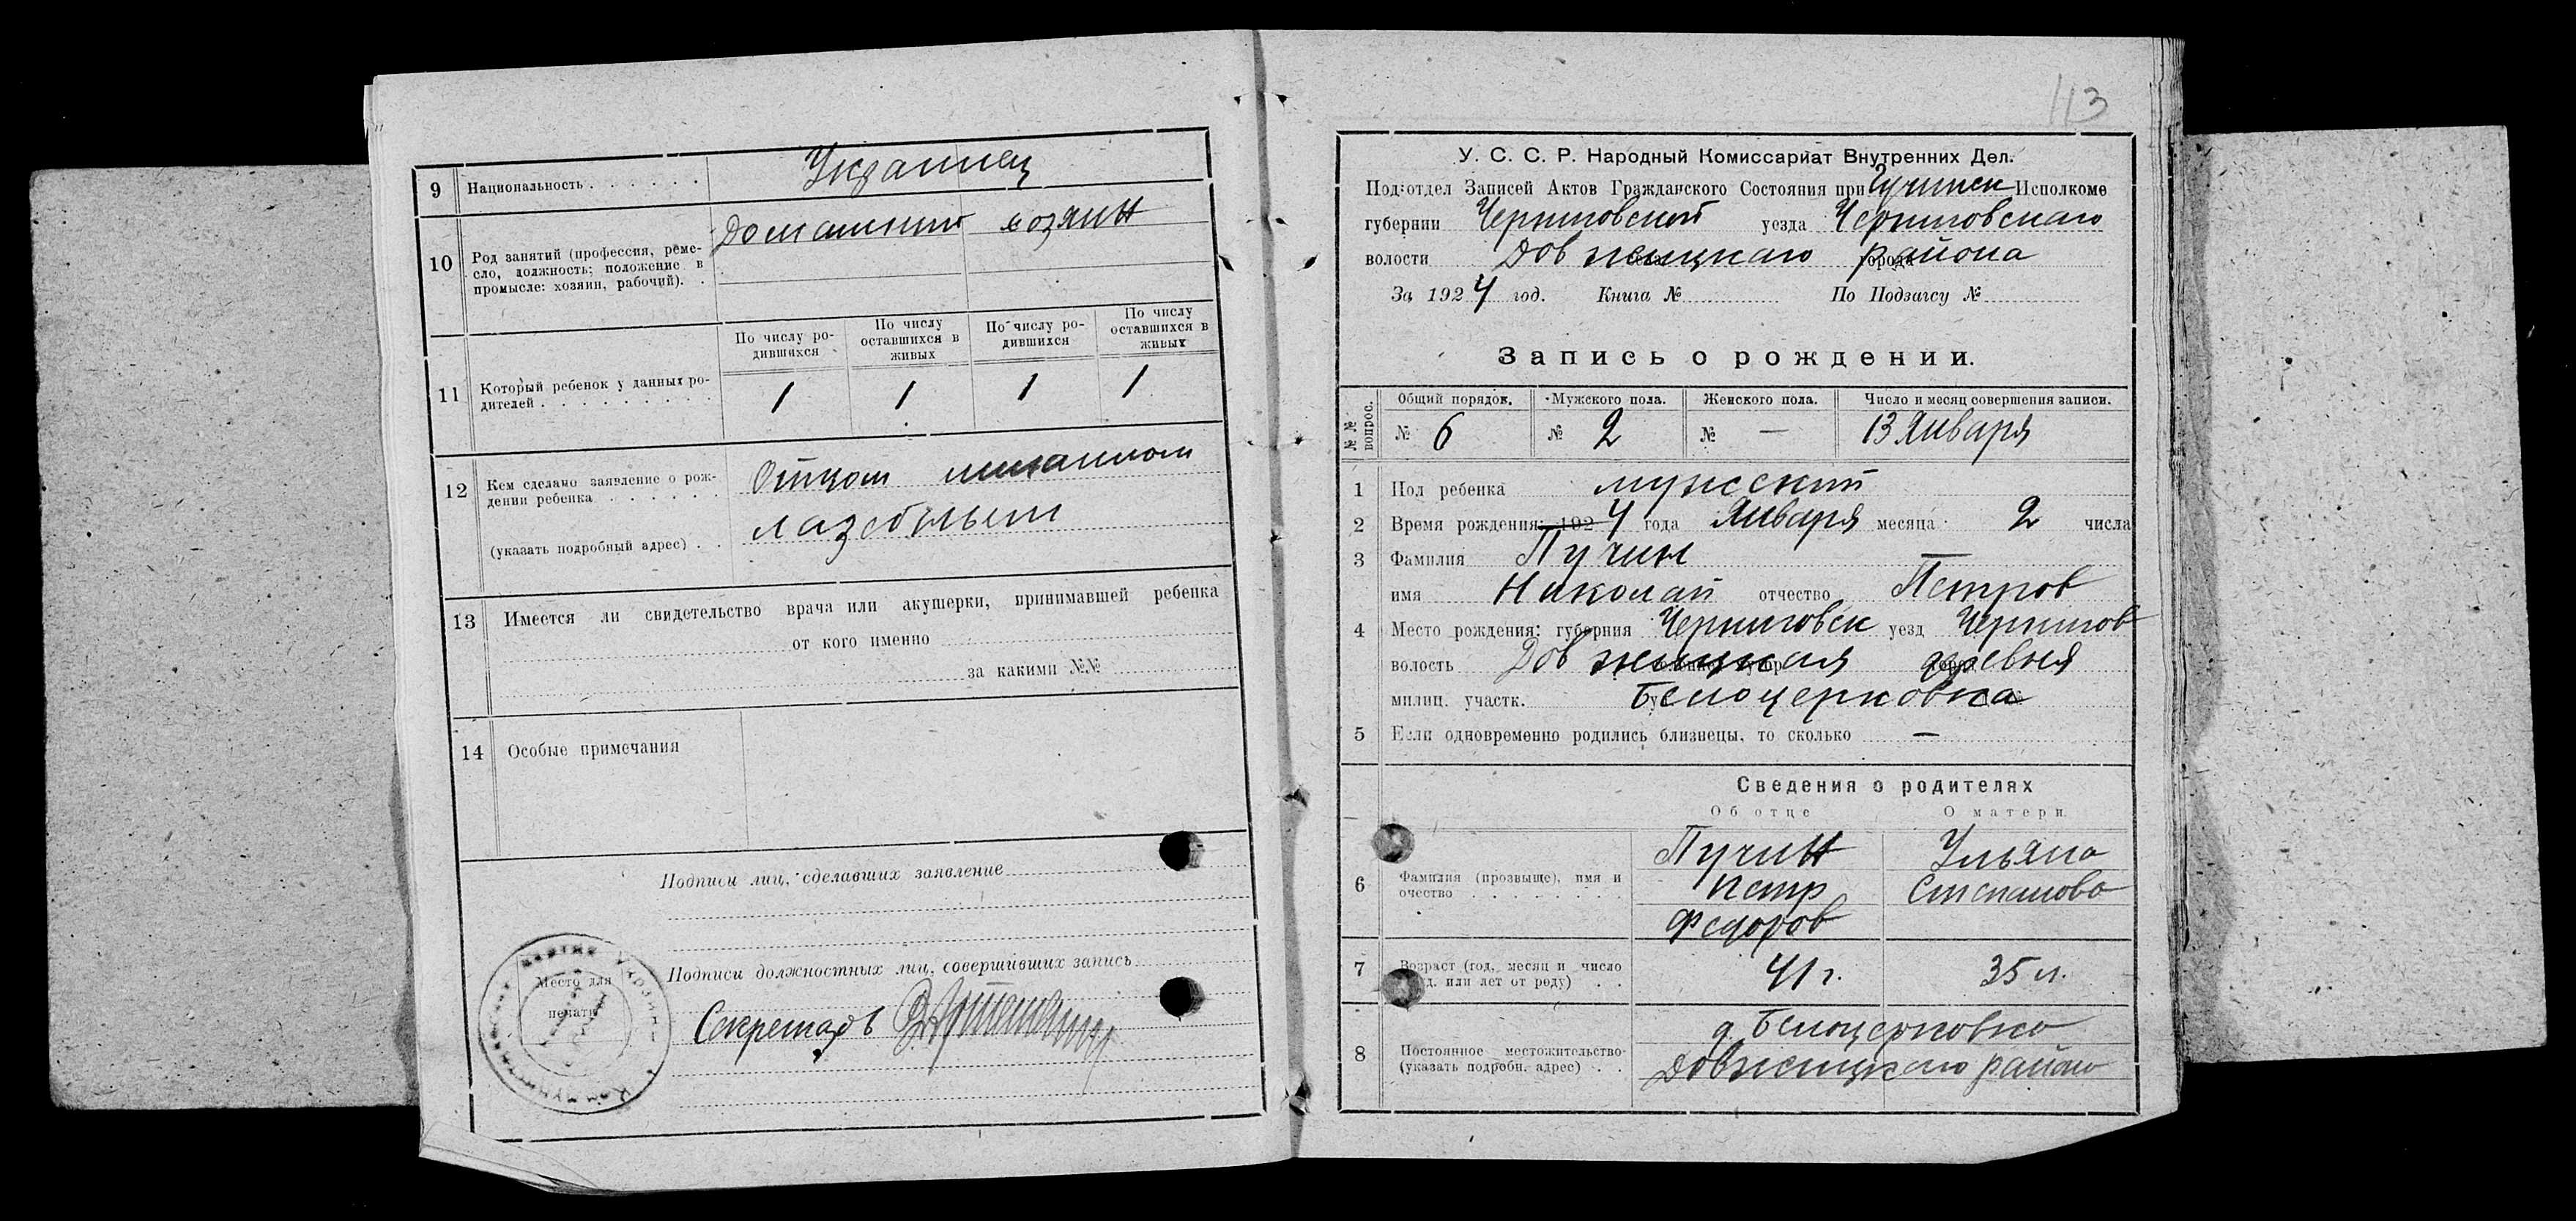 9 Национальность . . . . . . Украинец
10 Род занятий (профессия, реме-
сло, должность; положение в
промысле: хозяин, рабочий). .
Домашний хозяин
По числу ро-
дившихся
По числу
оставшихся в
живых
По числу ро-
дившихся
По числу
оставшихся в
живых
11 Который ребенок у данных ро-
дителей . . . . . . . . .
1 1 1 1
12 Кем сделано заявление о рож-
дении ребенка . . . . . .
(указать подробный адрес) . .
Отцом
13 Имеется ли свидетельство врача или акушерки, принимавшей ребенка
от кого именно
за какими №№
14 Особые примечания
Подписи лиц, сделавших заявление
Подписи должностных лиц, совершивших запись
Место для
печати
Секретарь
113
У. С. С. Р. Народный Комиссариат Внутренних Дел.
Под‘отдел Записей Актов Гражданского Состояния при Исполкоме
губернии Черниговской уезда Черниговскаго
волости Довжицкаго района
За 1924 год. Книга № По Подзагсу №
Запись о рождении.
№№ вопрос.
Общий порядок. Мужского пола. Женского пола. Число и месяц совершения записи.
№ 6 № 2 № — 13 Января
1 Пол ребенка мужской
2 Время рождения: 1924 года Января месяца 2 числа
3 Фамилия Пучин
имя Николай отчество Петров
4 Место рождения: губерния Черниговск уезд Чернигов
волость Довжицкая деревня
милиц. участк. Белоцерковка
5 Если одновременно родились близнецы, то сколько —
Сведения о родителях
Об отце О матери
6 Фамилия (прозвыще), имя и
очество . . . . . . . .
Пучин
Петр
Федоров
Ульяна
Степанова
7 Возраст (год, месяц и число
или лет от роду) . .
41 г. 35 л.
8 Постоянное местожительство
(указать подробн. адрес) . .
д. Белоцерковка
Довжицкаго района